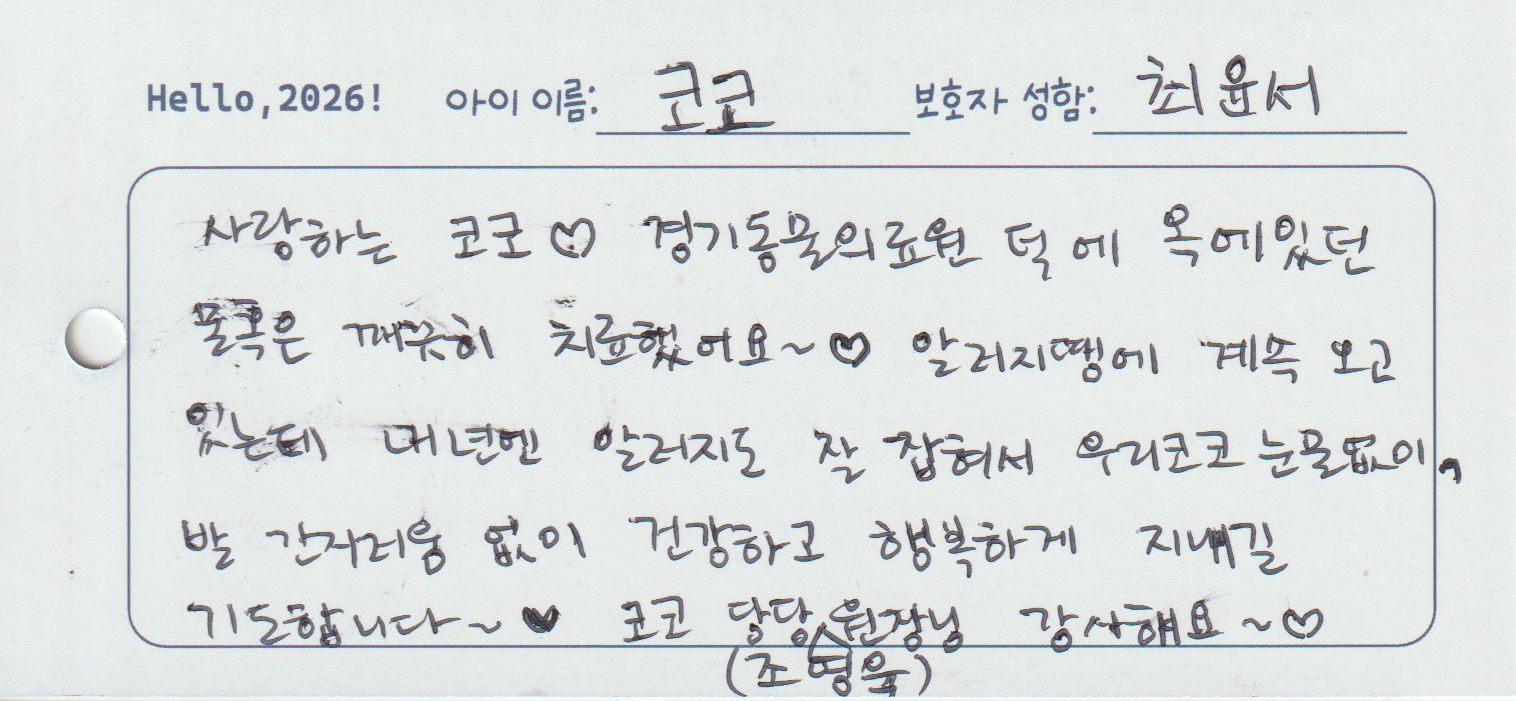 Hello, 2026! 아이 이름: 코코 보호자 성함: 최윤서
사랑하는 코코♡ 경기동물의료원 덕에 목에있던
물혹은 깨끗히 치료했어요~♡ 알러지땜에 계속 오고
있는데 내년엔 알러지도 잘 잡혀서 우리코코 눈물없이,
발 간지러움 없이 건강하고 행복하게 지내길
기도합니다~♥ 코코 담당 원장님 감사해요~♡
(조영욱)